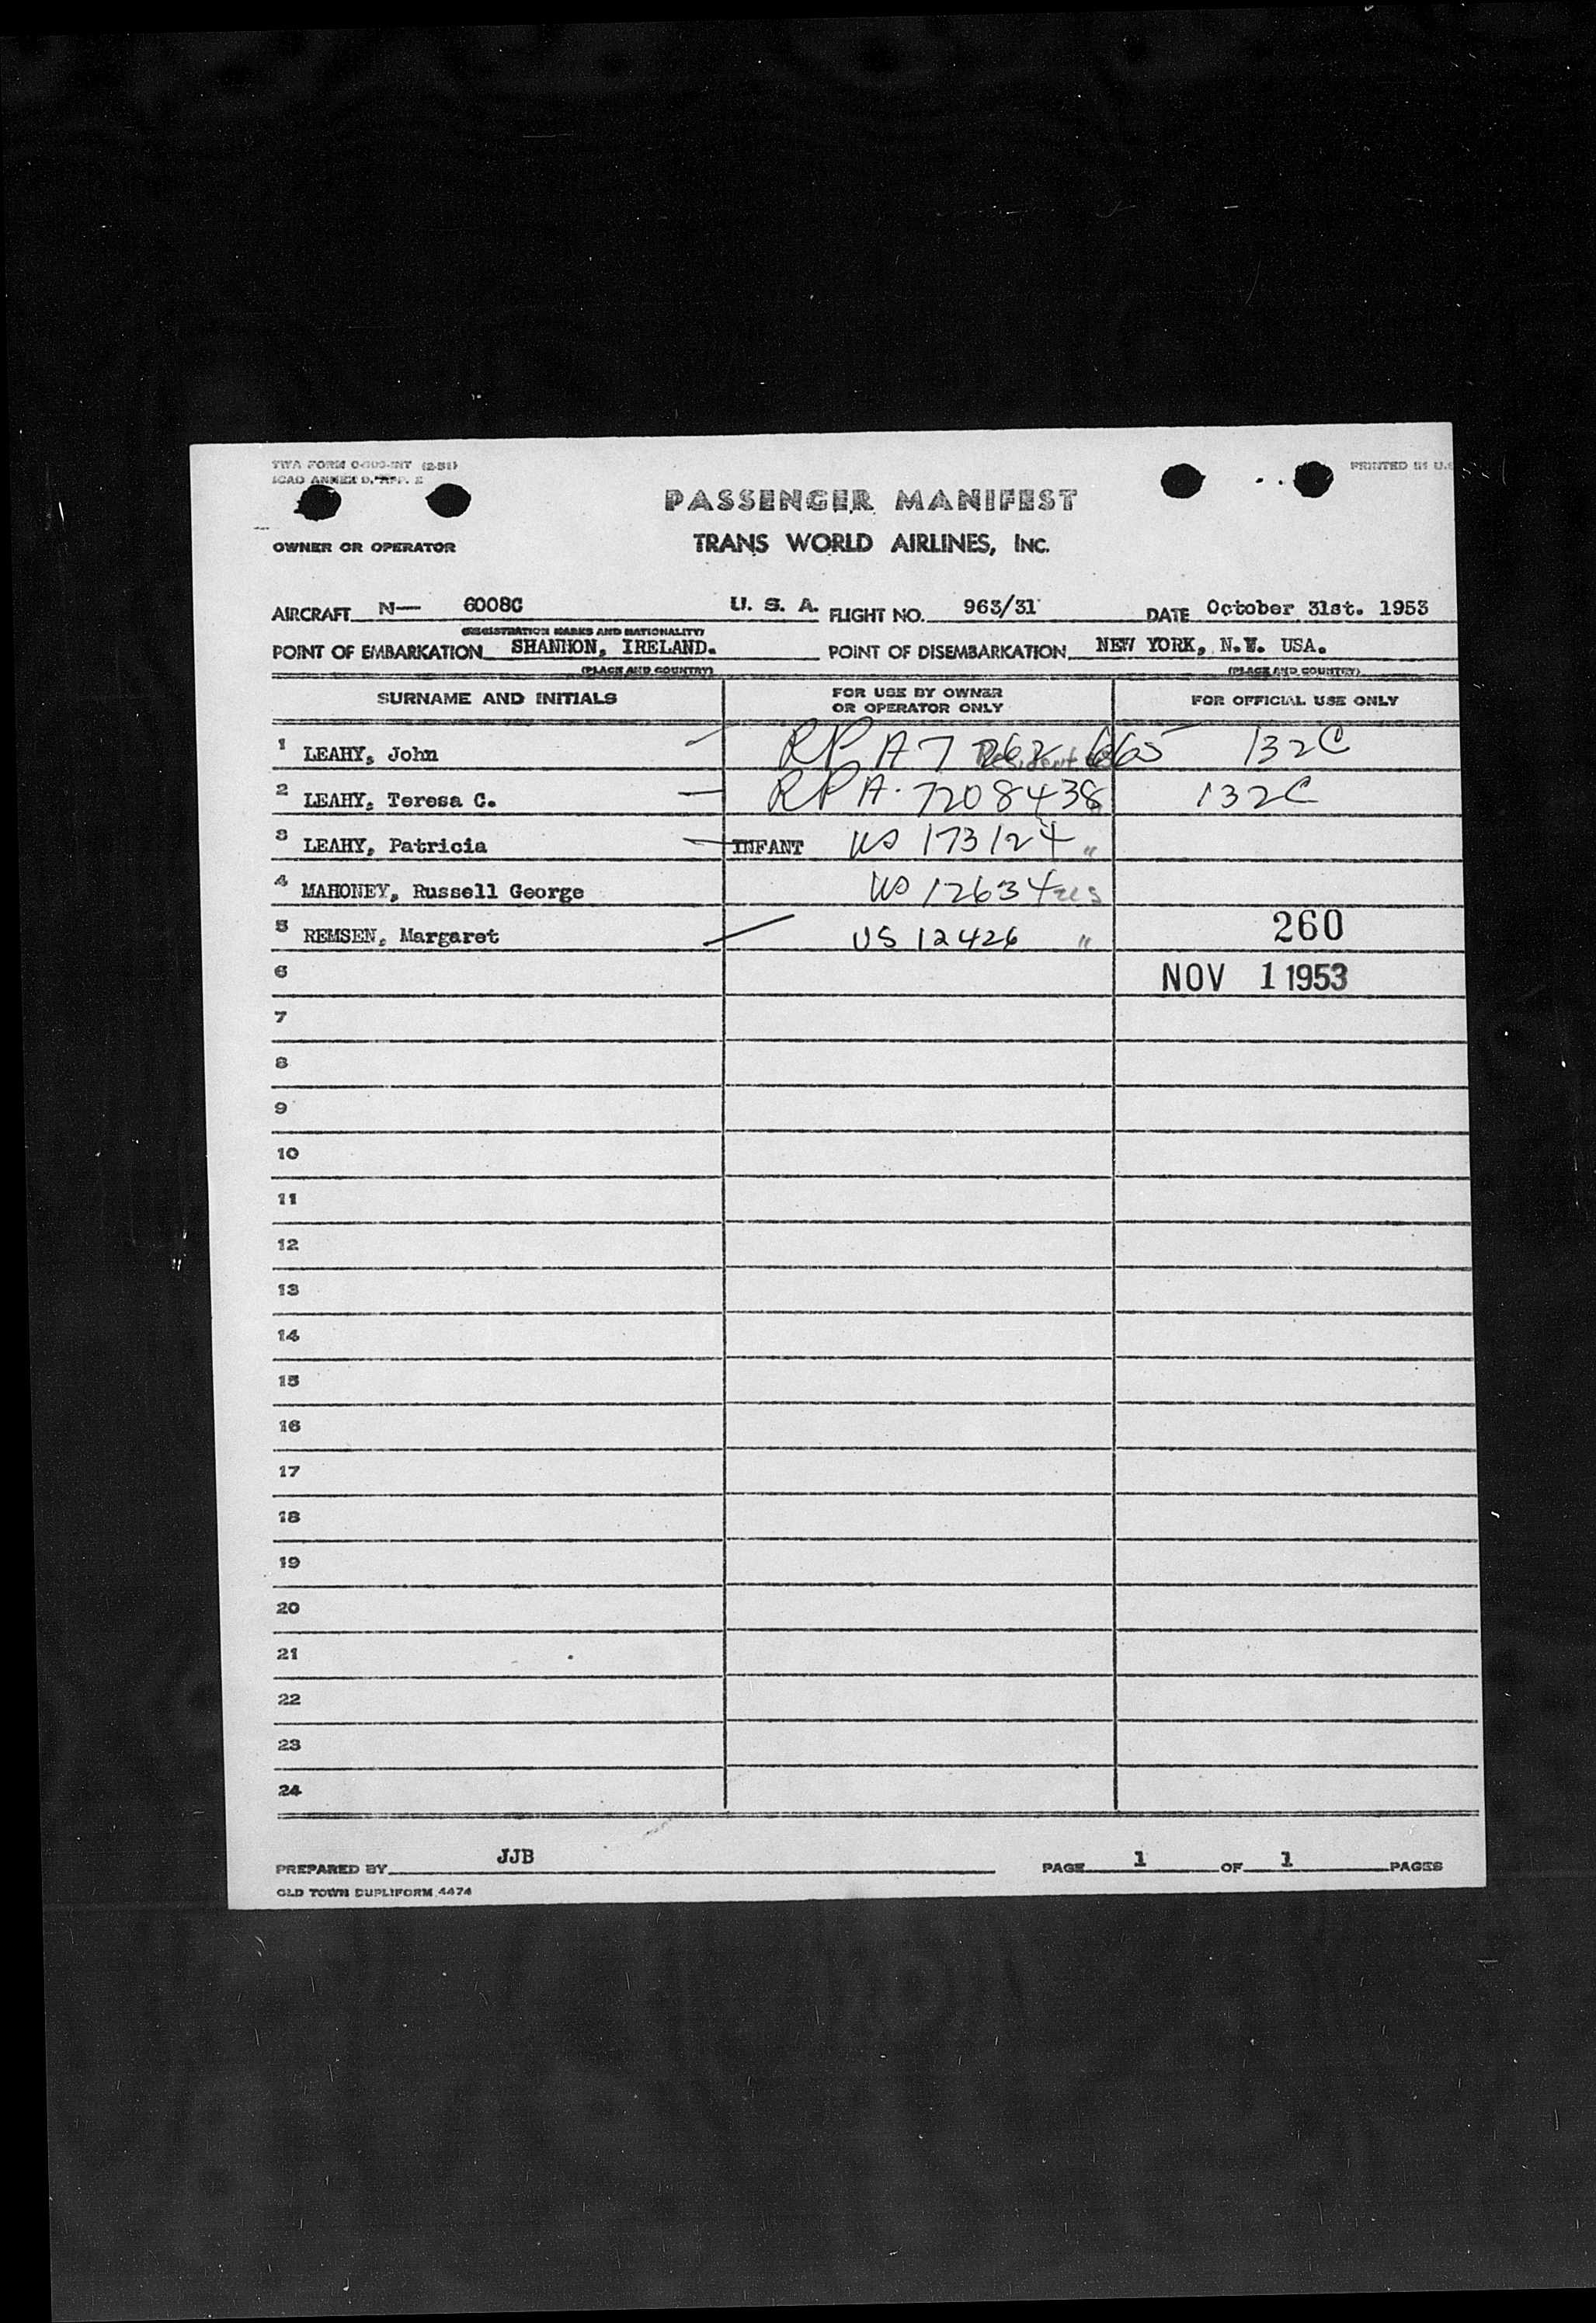 TWA FORM
ICAO ANNEX 9, APP. E
PRINTED IN U.S
PASSENGER MANIFEST
OWNER OR OPERATOR TRANS WORLD AIRLINES, INC.
AIRCRAFT N— 6008C U. S. A. FLIGHT NO. 963/31 DATE October 31st. 1953
(REGISTRATION MARKS AND NATIONALITY)
POINT OF EMBARKATION SHANNON, IRELAND. POINT OF DISEMBARKATION NEW YORK, N.Y. USA.
(PLACE AND COUNTRY) (PLACE AND COUNTRY)
SURNAME AND INITIALS FOR USE BY OWNER OR OPERATOR ONLY FOR OFFICIAL USE ONLY
1 LEAHY, John RP A7 262 665 132C
2 LEAHY, Teresa C. RP A. 7208438 132C
3 LEAHY, Patricia INFANT US 173124 "
4 MAHONEY, Russell George US 12634
5 REMSEN, Margaret US 12426 " 260
6 NOV 1 1953
7
8
9
10
11
12
13
14
15
16
17
18
19
20
21
22
23
24
PREPARED BY JJB PAGE 1 OF 1 PAGES
OLD TOWN DUPLIFORM 4474